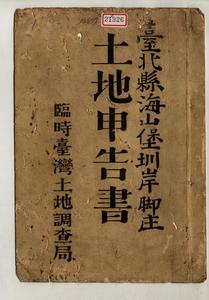 21326
臺北縣海山堡圳岸脚庄
土地申告書
臨時臺灣土地調查局